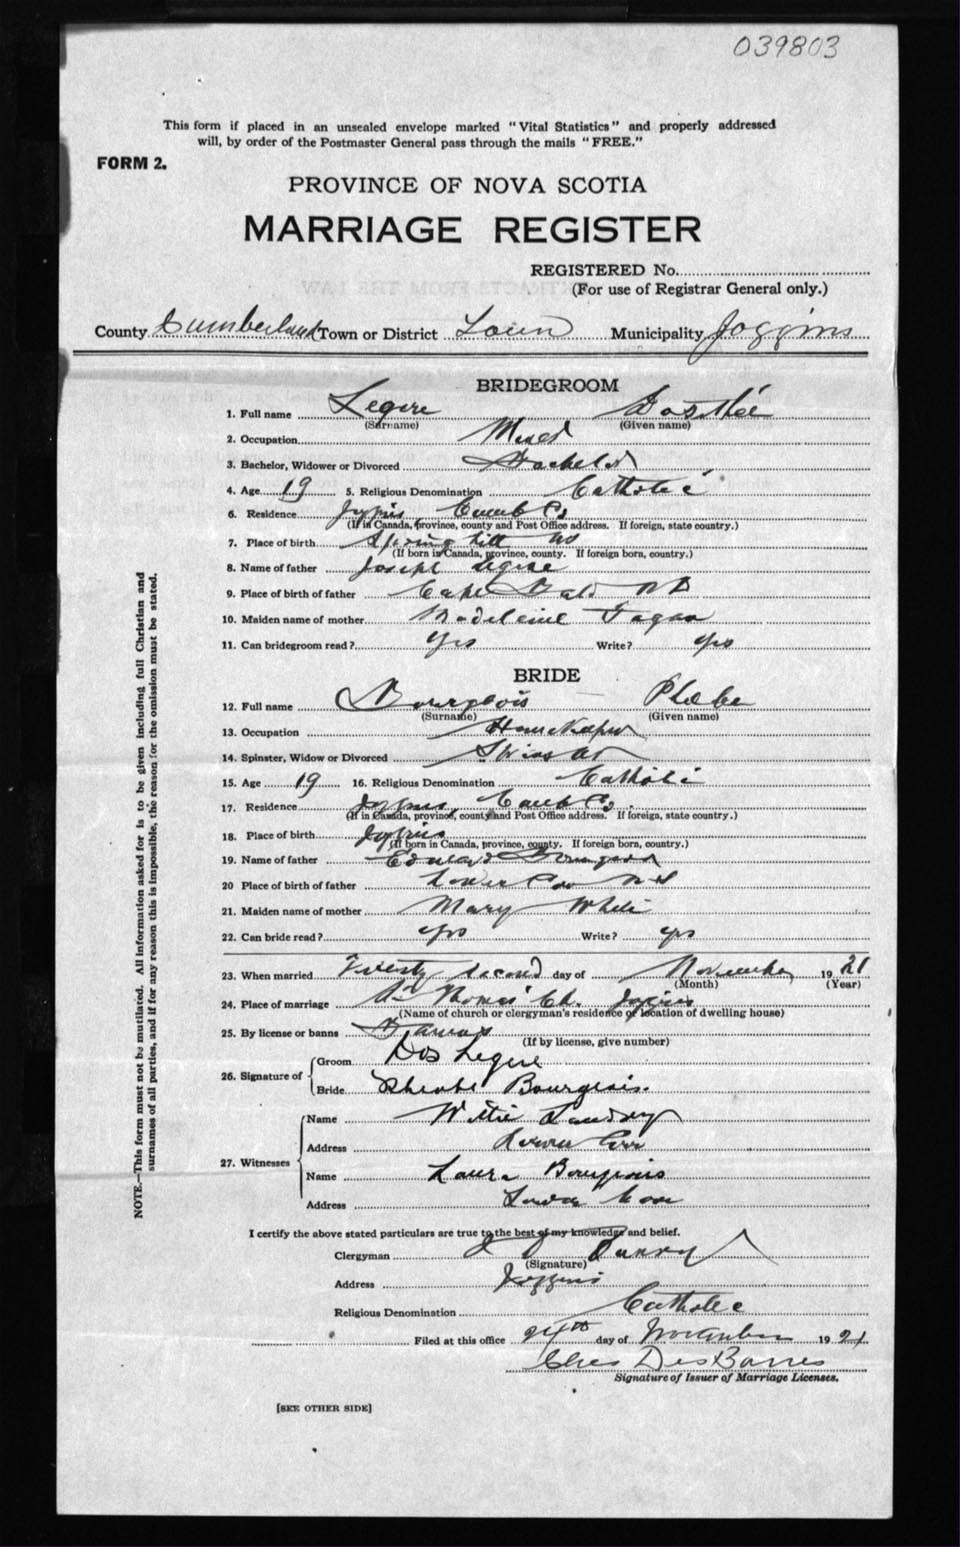 039803
This form if placed in an unsealed envelope marked "Vital Statistics" and properly addressed
will, by order of the Postmaster General pass through the mails "FREE."
FORM 2.
PROVINCE OF NOVA SCOTIA
MARRIAGE REGISTER
REGISTERED No.
(For use of Registrar General only.)
County Cumberland Town or District Town Municipality Joggins
BRIDEGROOM
1. Full name Legere Dosithé
(Surname) (Given name)
2. Occupation Miner
3. Bachelor, Widower or Divorced Bachelor
4. Age 19 5. Religious Denomination Catholic
6. Residence Joggins Cumb Co
(If in Canada, province, county and Post Office address. If foreign, state country.)
7. Place of birth Spring hill NS
(If born in Canada, province, county. If foreign born, country.)
8. Name of father Joseph Legere
9. Place of birth of father Cape Bald NB
10. Maiden name of mother Madeleine
11. Can bridegroom read? Yes Write? yes
BRIDE
12. Full name Bourgeois Phoebe
(Surname) (Given name)
13. Occupation Housekeeper
14. Spinster, Widow or Divorced Spinster
15. Age 19 16. Religious Denomination Catholic
17. Residence Joggins, Cumb Co.
(If in Canada, province, county and Post Office address. If foreign, state country.)
18. Place of birth Joggins
(If born in Canada, province, county. If foreign born, country.)
19. Name of father Edward Bourgeois
20 Place of birth of father Lower Cove NS
21. Maiden name of mother Mary White
22. Can bride read? yes Write? yes
23. When married Twenty second day of November 1921
(Month) (Year)
24. Place of marriage St Thomas' Ch. Joggins
(Name of church or clergyman's residence or location of dwelling house)
25. By license or banns Banns
(If by license, give number)
26. Signature of Groom Dos Legere
Bride Pheobe Bourgeois.
27. Witnesses
Name Willie Landry
Address Lower Cove
Name Laura Bourgeois
Address Lower Cove
I certify the above stated particulars are true to the best of my knowledge and belief.
Clergyman
(Signature)
Address Joggins
Religious Denomination Catholic
Filed at this office 24th day of November 1921
Chas DesBarres
Signature of Issuer of Marriage Licenses.
[SEE OTHER SIDE]
NOTE.—This form must not be mutilated. All information asked for is to be given including full Christian and
surnames of all parties, and if for any reason this is impossible, the reason for the omission must be stated.